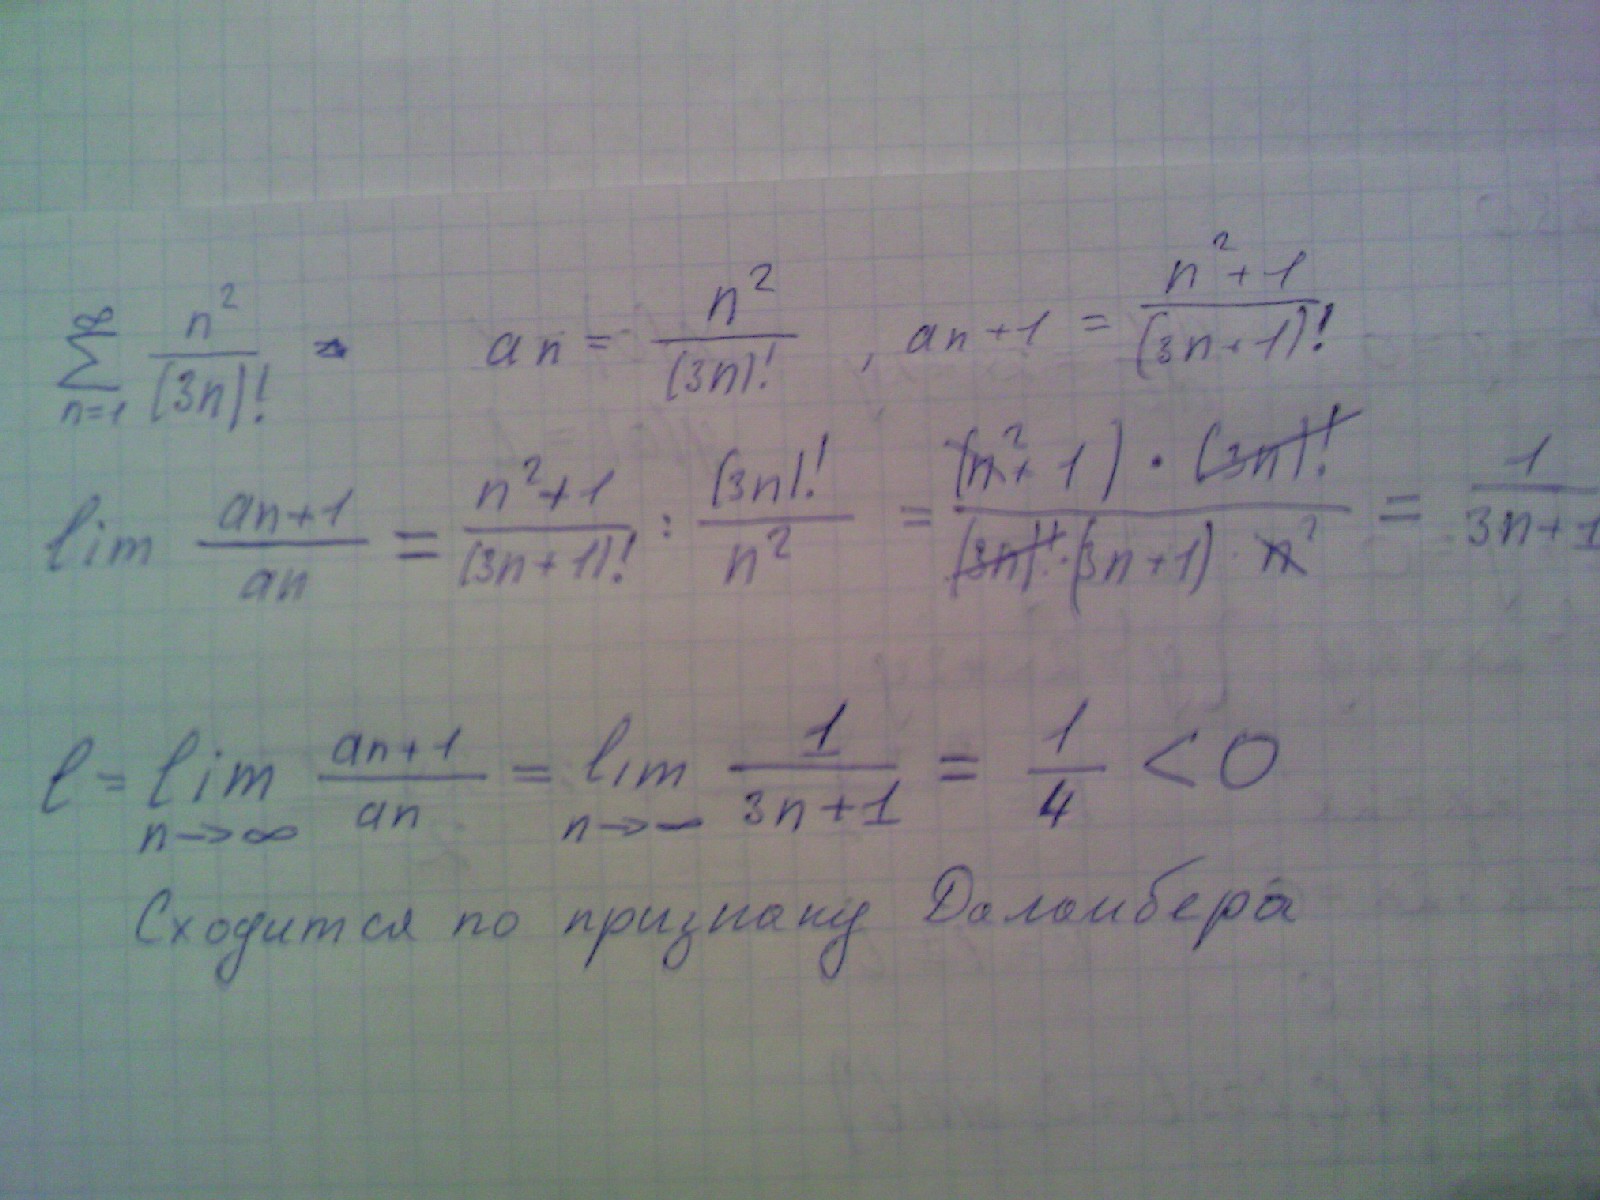 ∞ ∑ n=1 n² / (3n)! = an = n² / (3n)! , an+1 = n²+1 / (3n+1)!
lim an+1 / an = n²+1 / (3n+1)! : (3n)! / n² = (n²+1) · (3n)! / (3n)! · (3n+1) · n² = 1 / 3n+1
l = lim n→∞ an+1 / an = lim n→∞ 1 / 3n+1 = 1 / 4 < 0
Сходится по признаку Даламбера